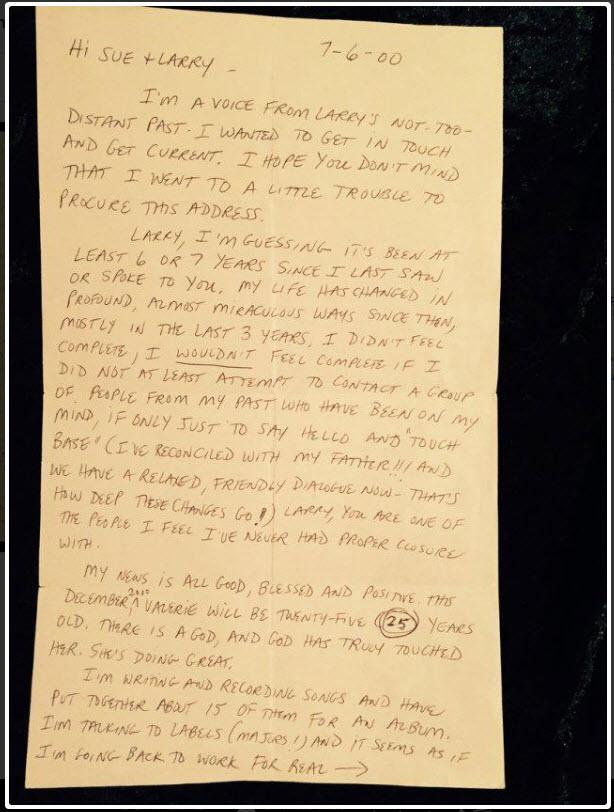 7-6-00
Hi SUE + LARRY -
I'M A VOICE FROM LARRY'S NOT-TOO-
DISTANT PAST. I WANTED TO GET IN TOUCH
AND GET CURRENT. I HOPE YOU DON'T MIND
THAT I WENT TO A LITTLE TROUBLE TO
PROCURE THIS ADDRESS.
LARRY, I'M GUESSING IT'S BEEN AT
LEAST 6 OR 7 YEARS SINCE I LAST SAW
OR SPOKE TO YOU. MY LIFE HAS CHANGED IN
PROFOUND, ALMOST MIRACULOUS WAYS SINCE THEN,
MOSTLY IN THE LAST 3 YEARS. I DIDN'T FEEL
COMPLETE, I WOULDN'T FEEL COMPLETE IF I
DID NOT AT LEAST ATTEMPT TO CONTACT A GROUP
OF PEOPLE FROM MY PAST WHO HAVE BEEN ON MY
MIND, IF ONLY JUST TO SAY HELLO AND "TOUCH
BASE" (I'VE RECONCILED WITH MY FATHER!!! AND
WE HAVE A RELAXED, FRIENDLY DIALOGUE NOW - THAT'S
HOW DEEP THESE CHANGES GO!) LARRY, YOU ARE ONE OF
THE PEOPLE I FEEL I'VE NEVER HAD PROPER CLOSURE
WITH.
MY NEWS IS ALL GOOD, BLESSED AND POSITIVE. THIS
DECEMBER, 2000 VALERIE WILL BE TWENTY-FIVE (25) YEARS
OLD. THERE IS A GOD, AND GOD HAS TRULY TOUCHED
HER. SHE'S DOING GREAT.
I'M WRITING AND RECORDING SONGS AND HAVE
PUT TOGETHER ABOUT 15 OF THEM FOR AN ALBUM.
I'M TALKING TO LABELS (MAJORS!) AND IT SEEMS AS IF
I'M GOING BACK TO WORK FOR REAL →